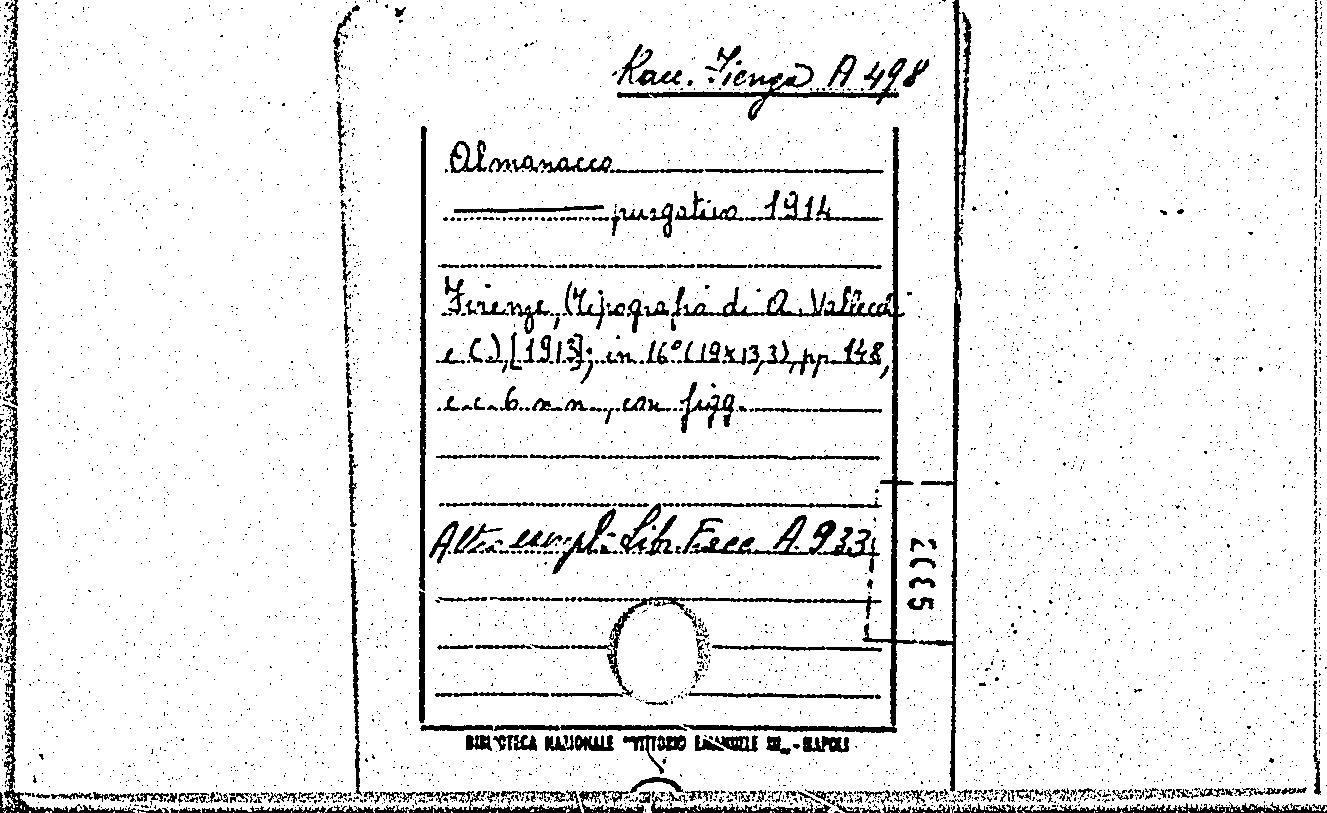 Racc. Fienga A 498
Almanacco
purgativo 1914
Firenze, (Tipografia di A. Vallecchi
e C.) [1913]; in 16° (19x13,3), pp. 148,
c.c. 6 n. n., con figg.
Altro esempl: Lib. Face A. 933
BIBLIOTECA NAZIONALE "VITTORIO EMANUELE III„ - NAPOLI